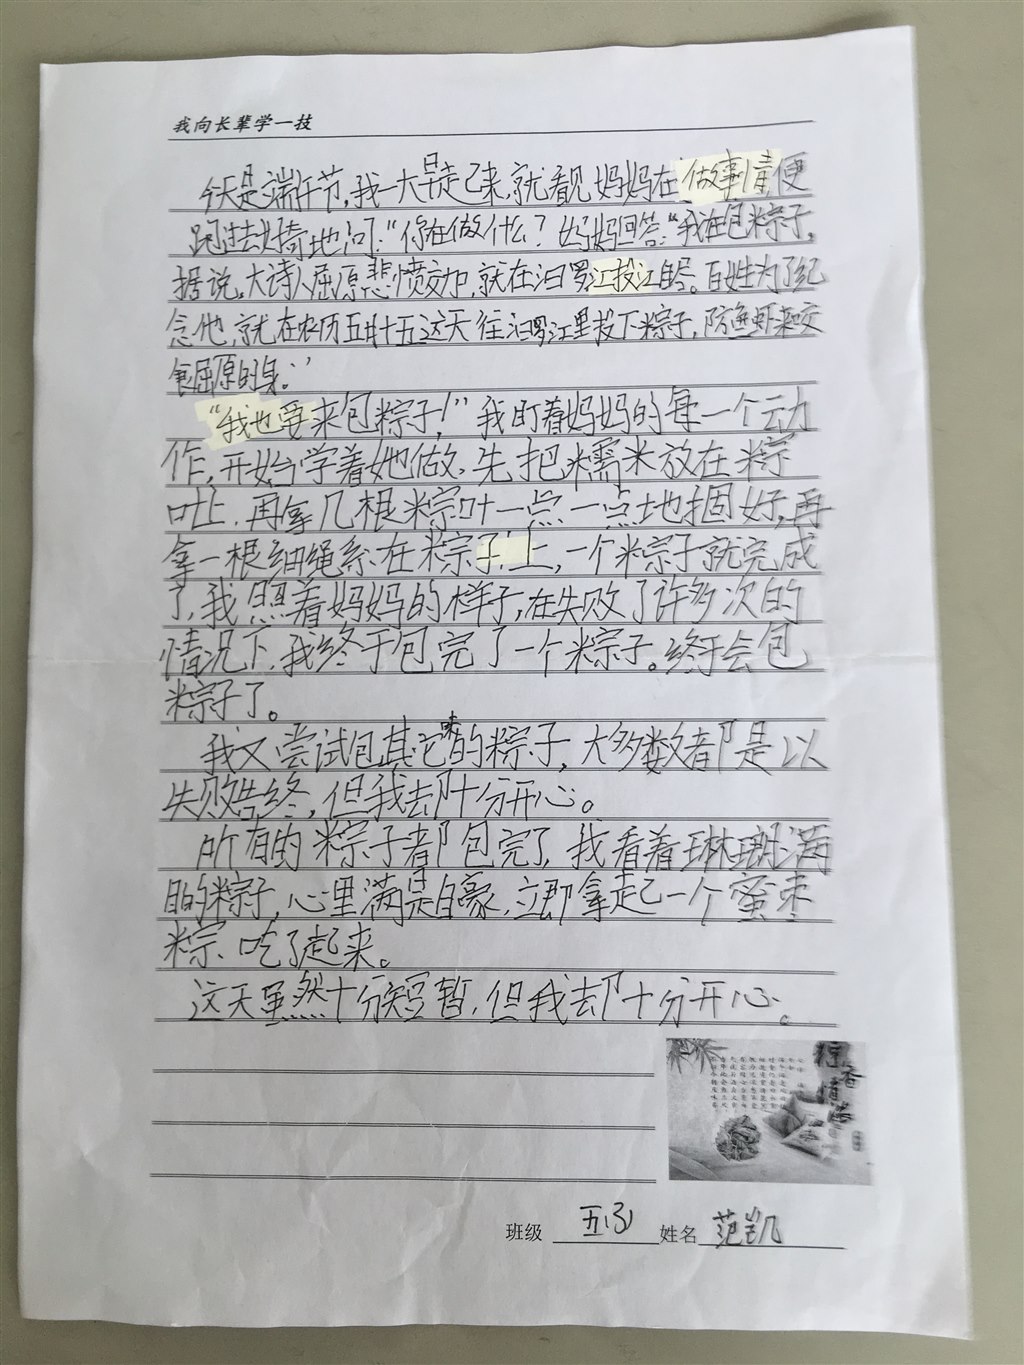 我向长辈学一技
今天是端午节,我一大早走己来,就看见妈妈在做事情便
跑过去好奇地问:“你在做什么?妈妈回答:“我在包粽子,
据说,大诗人屈原悲愤交加,就在汨罗江投江自尽。百姓为了纪
念他,就在农历五月十五这天往汨罗江里投下粽子,防鱼虾来咬
食屈原的身。’
“我也要来包粽子!”我盯着妈妈的每一个动
作,开始学着她做,先把糯米放在粽
叶上,再拿几根粽叶一点一点地捆好,再
拿一根细绳系在粽子上,一个粽子就完成
了,我照着妈妈的样子,在失败了许多次的
情况下,我终于包完了一个粽子。终于会包
粽子了。
我又尝试包其它味的粽子,大多数都是以
失败告终,但我却十分开心。
所有的粽子都包完了,我看着琳瑯满
目的粽子,心里满是自豪,立即拿起一个蜜枣
粽、吃了起来。
这天虽然十分短暂,但我却十分开心。
班级 五(3) 姓名 范凯